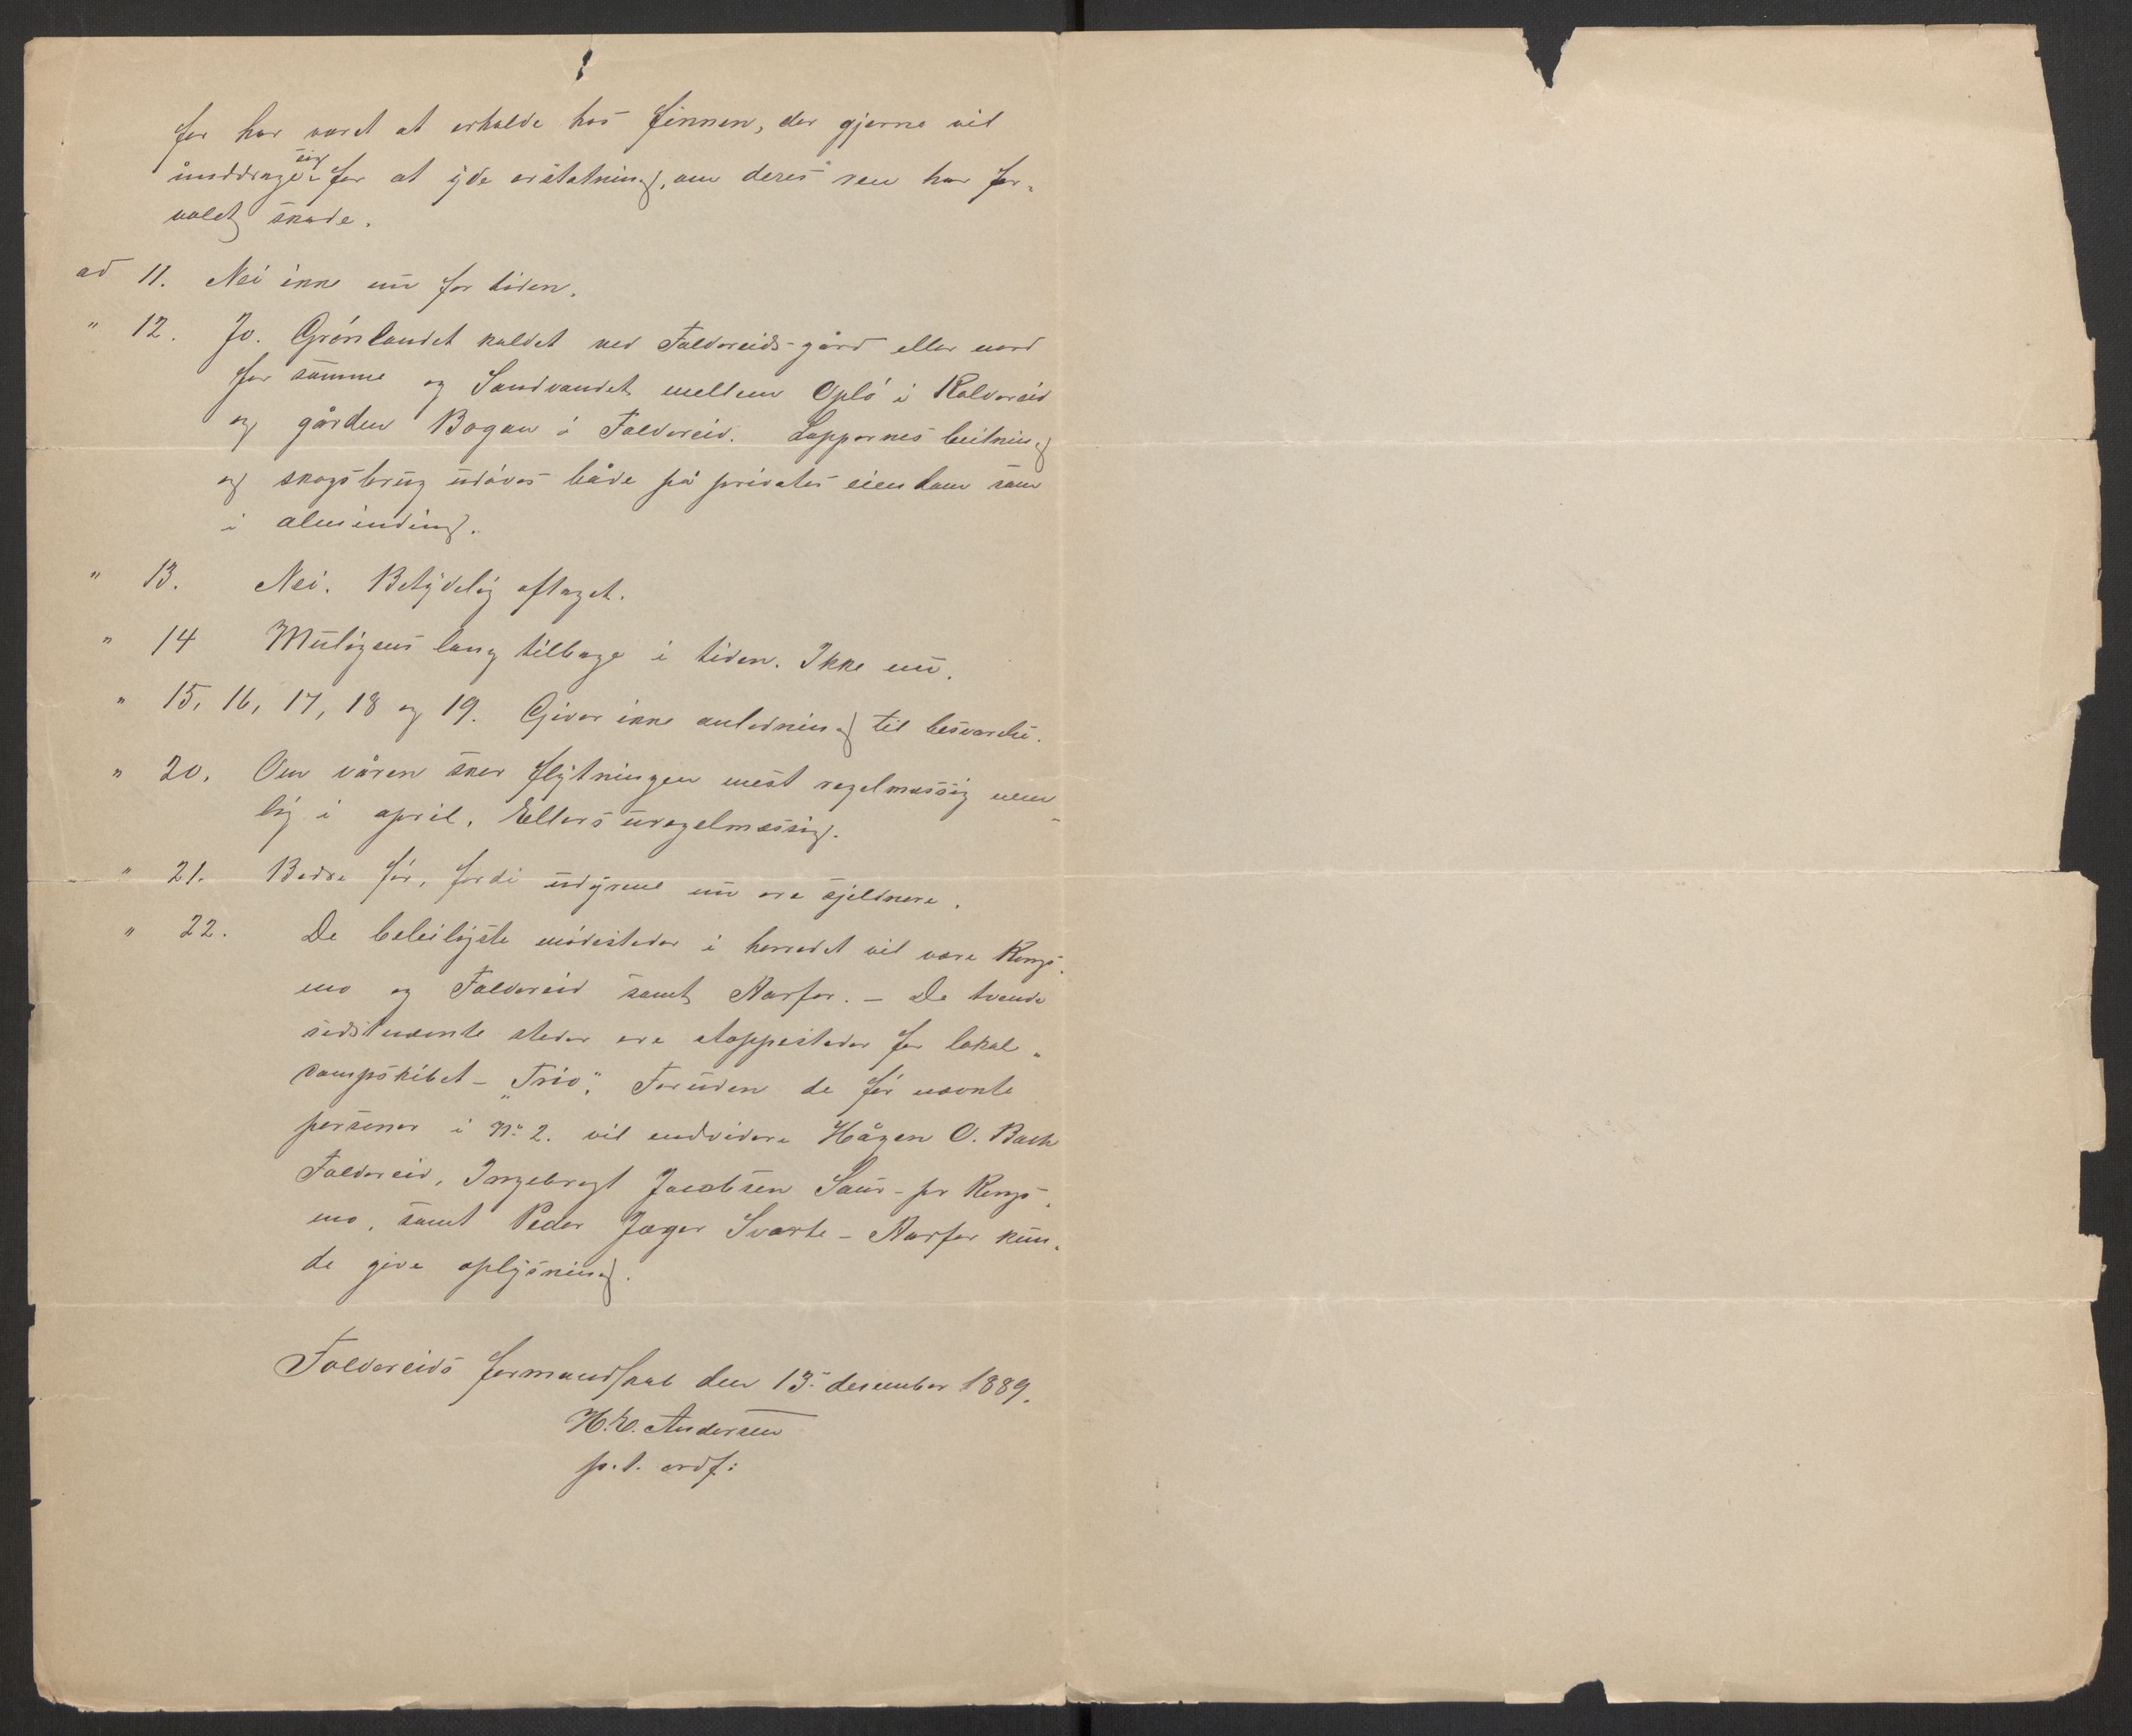 for har været at erholde hos finnen, der gjerne vil
unddrage sig for at yde erstatning, om deres ren har for-
voldt skade.
ad 11. Nei ikke nu for tiden.
" 12. Jo. Grönlandet kaldet ved Foldereids-gård eller nord
for samme og Sandvandet mellem Oplö i Kolvereid
og gården Bogen i Foldereid. Lappernes beitning
og skogsbrug udöves både på privates eiendom som
i alminding.
" 13. Nei. Betydelig aftaget.
" 14 Muligens lang tilbage i tiden. Ikke nu.
" 15, 16, 17, 18 og 19. Giver ikke anledning til besvarelse.
" 20. Om våren sker flytningen mest regelmæssig nem-
lig i april. Ellers uregelmæssig.
" 21. Bedre för, fordi udyrene nu ere sjeldnere.
" 22. De beleiligste mödesteder i herredet vil være Kongs-
mo og Foldereid samt Harfor. — De tvende
sidstnævnte steder ere stoppesteder for lokal-
dampskibet — „Trio". Foruden de för nævnte
personer i No 2. vil endvidere Hågen O. Bach
Foldereid, Ingebregt Jacobsen Saur - pr Kongs-
mo, samt Peder Jæger Svarte - Harfor kun-
de give oplysning.
Foldereids formandskab den 13. desember 1889.
H. E. Andersen
p.t. ordf: